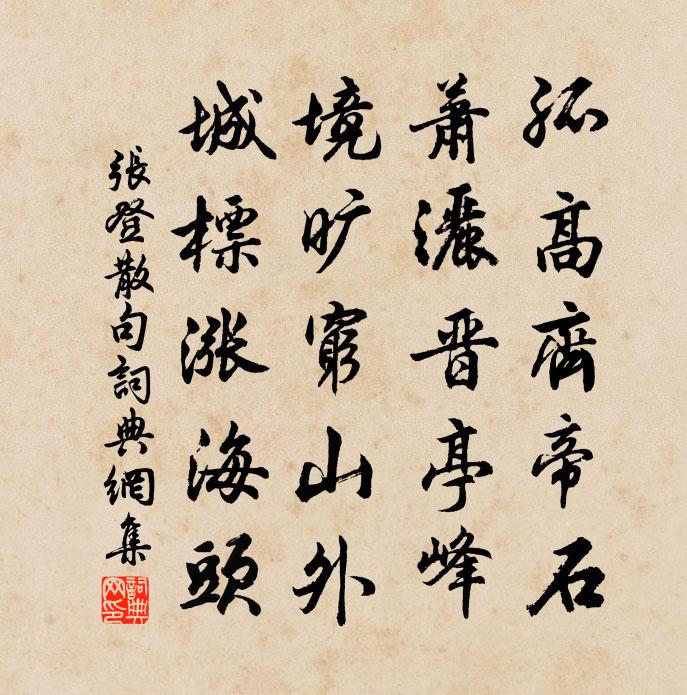 孤高齊帝石
蕭灑晋亭峰
境旷窮山外
城標漲海頭
張登散句詞典網集
詞典
网印